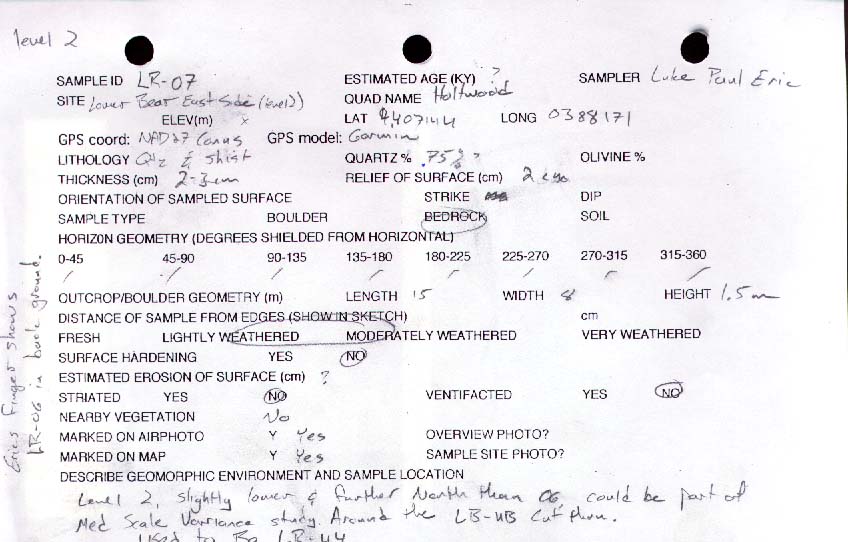 level 2
SAMPLE ID LR-07 ESTIMATED AGE (KY) ? SAMPLER Luke Paul Eric
SITE Lower Bear East Side (level 2) QUAD NAME Holtwood
ELEV(m) x LAT 4407144 LONG 0388171
GPS coord: NAD27 Conus GPS model: Garmin
LITHOLOGY Qtz & Shist QUARTZ % .75%? OLIVINE %
THICKNESS (cm) 2-3cm RELIEF OF SURFACE (cm) 2
ORIENTATION OF SAMPLED SURFACE STRIKE DIP
SAMPLE TYPE BOULDER BEDROCK SOIL
HORIZON GEOMETRY (DEGREES SHIELDED FROM HORIZONTAL)
0-45 45-90 90-135 135-180 180-225 225-270 270-315 315-360
/ / / / / / / /
OUTCROP/BOULDER GEOMETRY (m) LENGTH 15 WIDTH 8 HEIGHT 1.5m
DISTANCE OF SAMPLE FROM EDGES (SHOW IN SKETCH) cm
FRESH LIGHTLY WEATHERED MODERATELY WEATHERED VERY WEATHERED
SURFACE HARDENING YES NO
ESTIMATED EROSION OF SURFACE (cm) ?
STRIATED YES NO VENTIFACTED YES NO
NEARBY VEGETATION No
MARKED ON AIRPHOTO Y Yes OVERVIEW PHOTO?
MARKED ON MAP Y Yes SAMPLE SITE PHOTO?
DESCRIBE GEOMORPHIC ENVIRONMENT AND SAMPLE LOCATION
Level 2, slightly lower & further North than 06, could be part of
Med Scale Variance study. Around the LB-UB Cut thru.
Used to Be LR-44
Erics Finger shows
LR-06 in back ground.